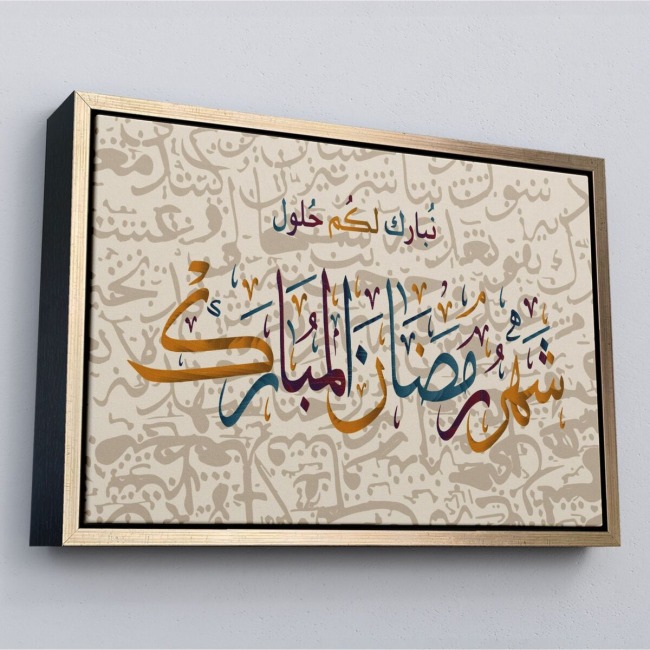 نُبارك لكُم حُلول
شَهْرُ رمَضَانَ المُبَارَك